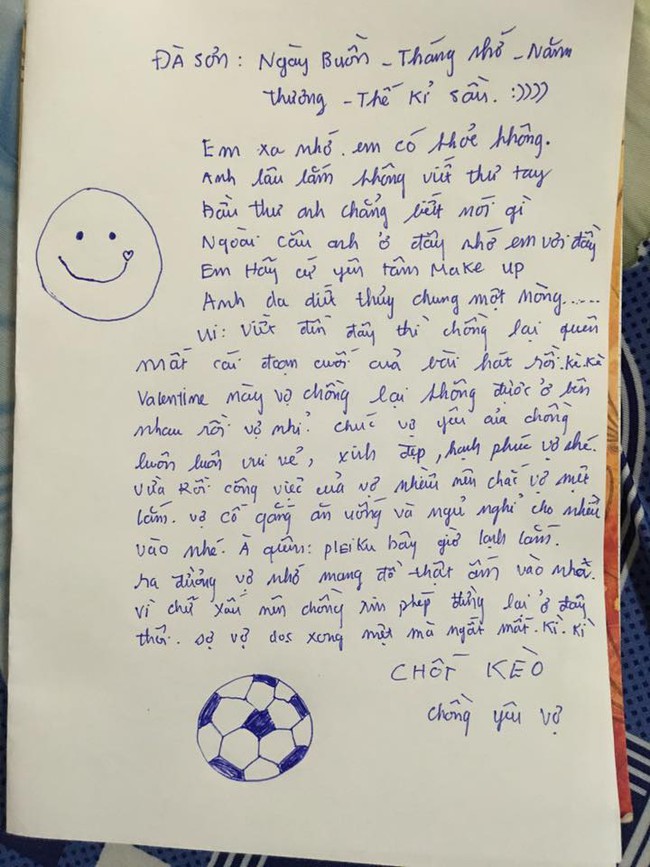 ĐÀ SƠN: Ngày Buồn - Tháng nhớ - Năm
thương - Thế kỉ sầu. :))))
Em xa nhớ. em có khỏe không.
Anh lâu lắm không viết thư tay
Đầu thư anh chẳng biết nói gì
Ngoài câu anh ở đây nhớ em vơi đầy
Em Hãy cứ yên tâm Make up
Anh da diết thủy chung một mòng......
Ui: viết đến đây thì chồng lại quên
mất cái đoạn cuối của bài hát rồi. Kè Kè
Valentine này vợ chồng lại không được ở bên
nhau rồi vợ nhỉ? chúc vợ yêu của chồng
luôn luôn vui vẻ, xinh đẹp, hạnh phúc vợ nhé.
vừa Rồi công việc của vợ nhiều nên chắc vợ mệt
lắm. vợ cố gắng ăn uống và ngủ nghỉ cho nhiều
vào nhé. À quên: pleiku bây giờ lạnh lắm.
ra đường vợ nhớ mang đồ thật ấm vào nhé.
vì chữ xấu nên chồng xin phép dừng lại ở đây
thôi. sợ vợ đọc xong mệt mà ngất mất. Kì. Kì
CHỐT KÈO
chồng yêu vợ